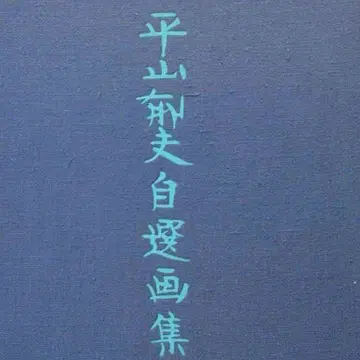 平山郁夫自選画集